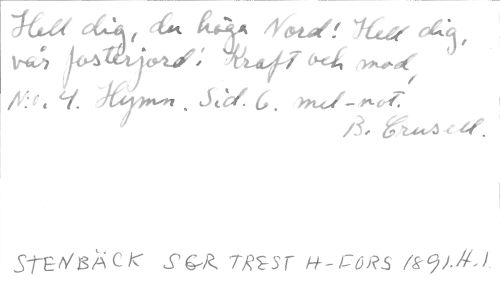 Hell dig, du höga Nord! Hell dig,
vår fosterjord! Kraft och mod,
N:o. 4. Hymn. Sid. 6. mel-not.
B. Crusell.
STENBÄCK SGR TREST H-FORS 1891.H.1.